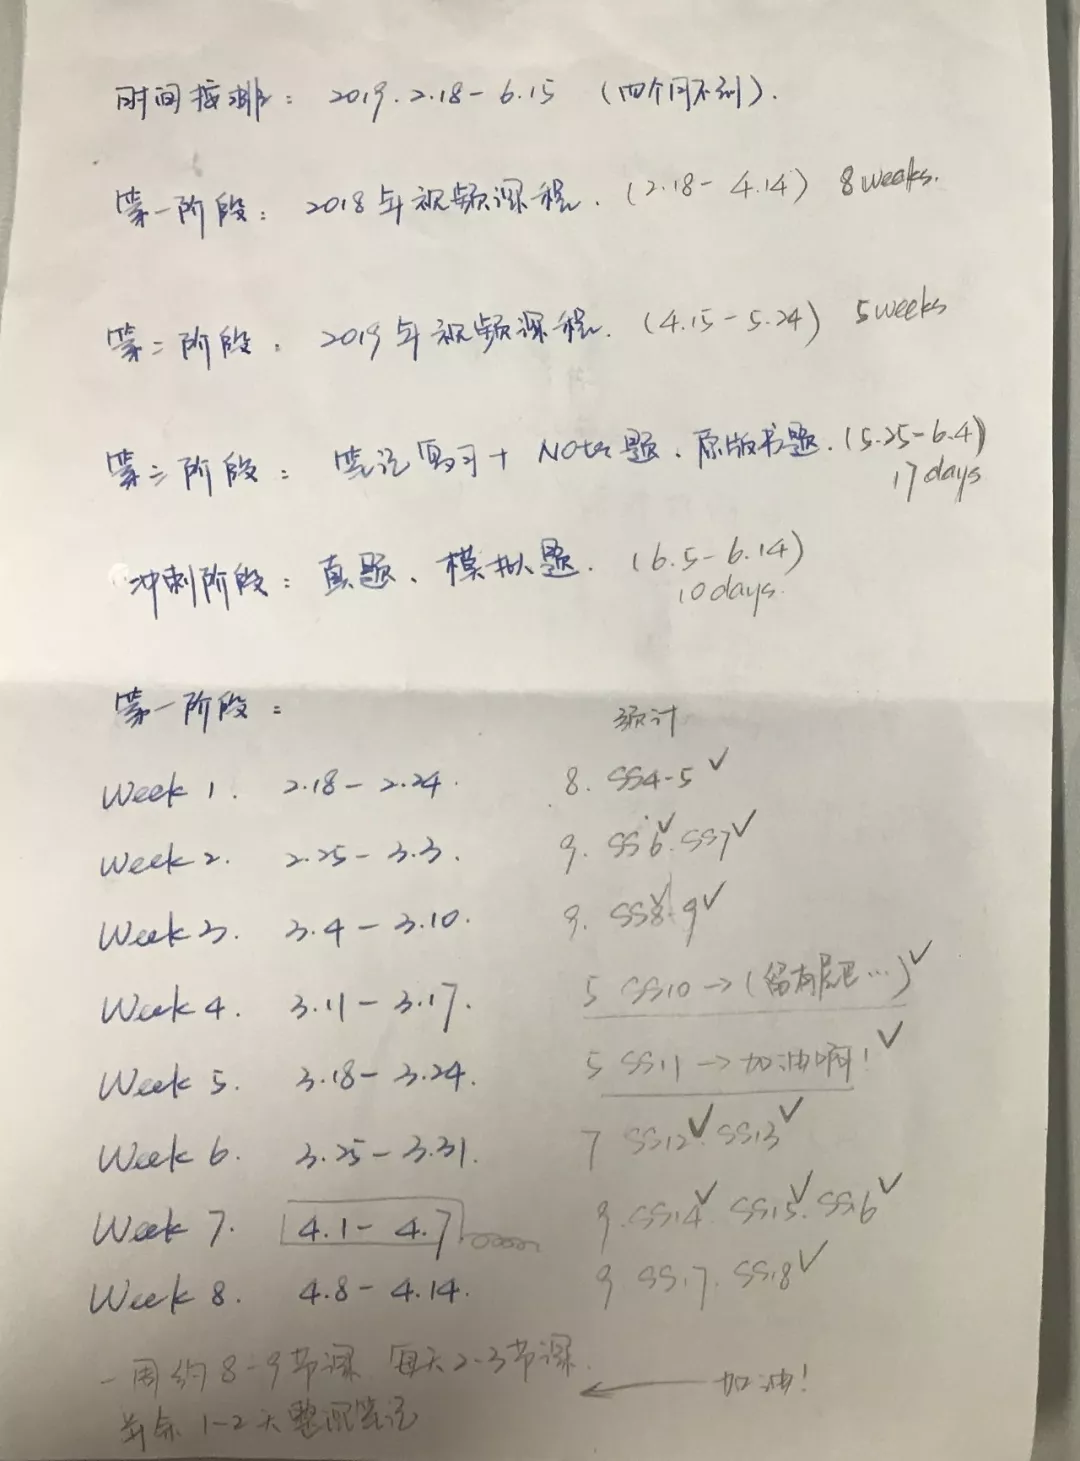 时间安排： 2019.2.18-6.15 （四个月不到）.
第一阶段： 2018年视频课程. (2.18-4.14) 8weeks.
第二阶段： 2019年视频课程. (4.15-5.24) 5weeks
第三阶段： 笔记复习+Note题、原版书题. (5.25-6.4)
17days
冲刺阶段： 真题、模拟题. (6.5-6.14)
10days.
第一阶段： 预计
Week 1. 2.18-2.24. 8. SS4-5 ✓
Week 2. 2.25-3.3. 9. SS6✓. SS7✓
Week 3. 3.4-3.10. 9. SS8✓ 9✓
Week 4. 3.11-3.17. 5 SS10→(留有尾巴…)✓
Week 5. 3.18-3.24. 5 SS11→加油啊!✓
Week 6. 3.25-3.31. 7 SS12✓. SS13✓
Week 7. 4.1-4.7 9. SS14✓. SS15✓. SS16✓
Week 8. 4.8-4.14. 9 SS17. SS18✓
一周约8-9节课 每天2-3节课.
1-2天整理笔记 ← 加油!